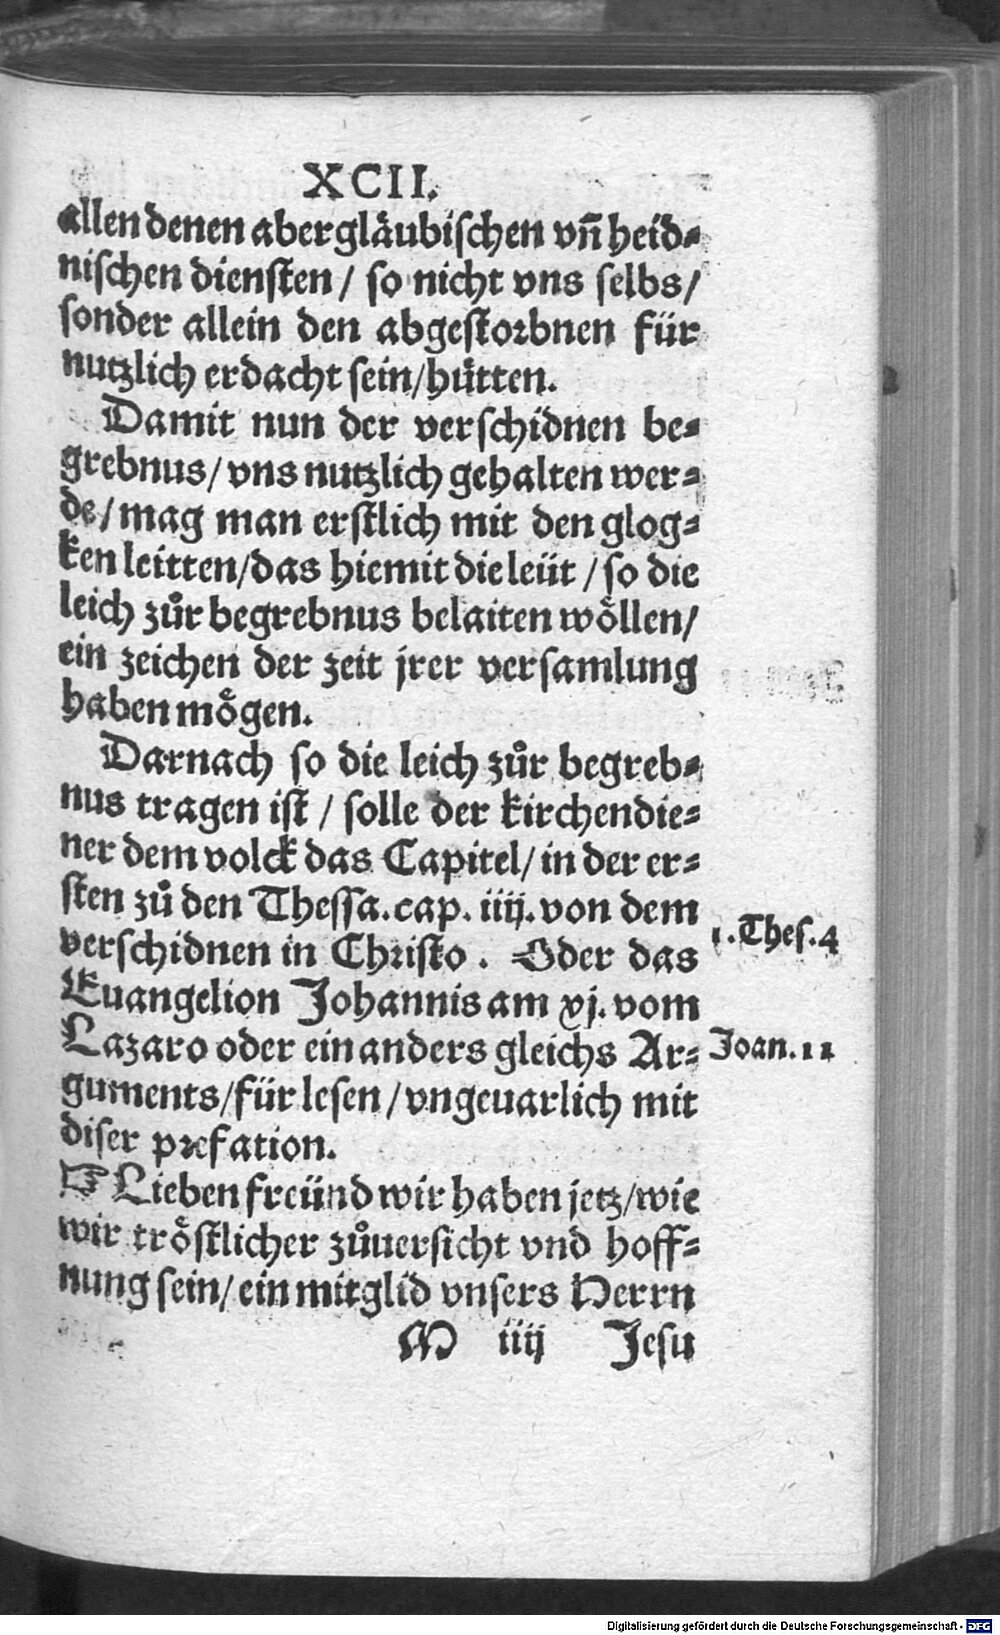 XCII.
allen denen abergläubischen vn̄ heid⸗
nischen diensten / so nicht vns selbs /
sonder allein den abgestorbnen für
nutzlich erdacht sein / hütten.
Damit nun der verschidnen be⸗
grebnus / vns nutzlich gehalten wer⸗
de / mag man erstlich mit den glog⸗
ken leitten / das hiemit die leüt / so die
leich zůr begrebnus belaiten wöllen /
ein zeichen der zeit jrer versamlung
haben mögen.
Darnach so die leich zůr begreb⸗
nus tragen ist / solle der kirchendie⸗
ner dem volck das Capitel / in der er⸗
sten zů den Thessa. cap. iiij. von dem
verschidnen in Christo. Oder das
1. Thes. 4
Euangelion Johannis am xj. vom
Lazaro oder ein anders gleichs Ar⸗
Joan. 11
guments / für lesen / vngeuarlich mit
diser prefation.
☞ Lieben freünd wir haben jetz / wie
wir tröstlicher zůuersicht vnd hoff⸗
nung sein / ein mitglid vnsers Herrn
M iiij Jesu
Digitalisierung gefördert durch die Deutsche Forschungsgemeinschaft - DFG